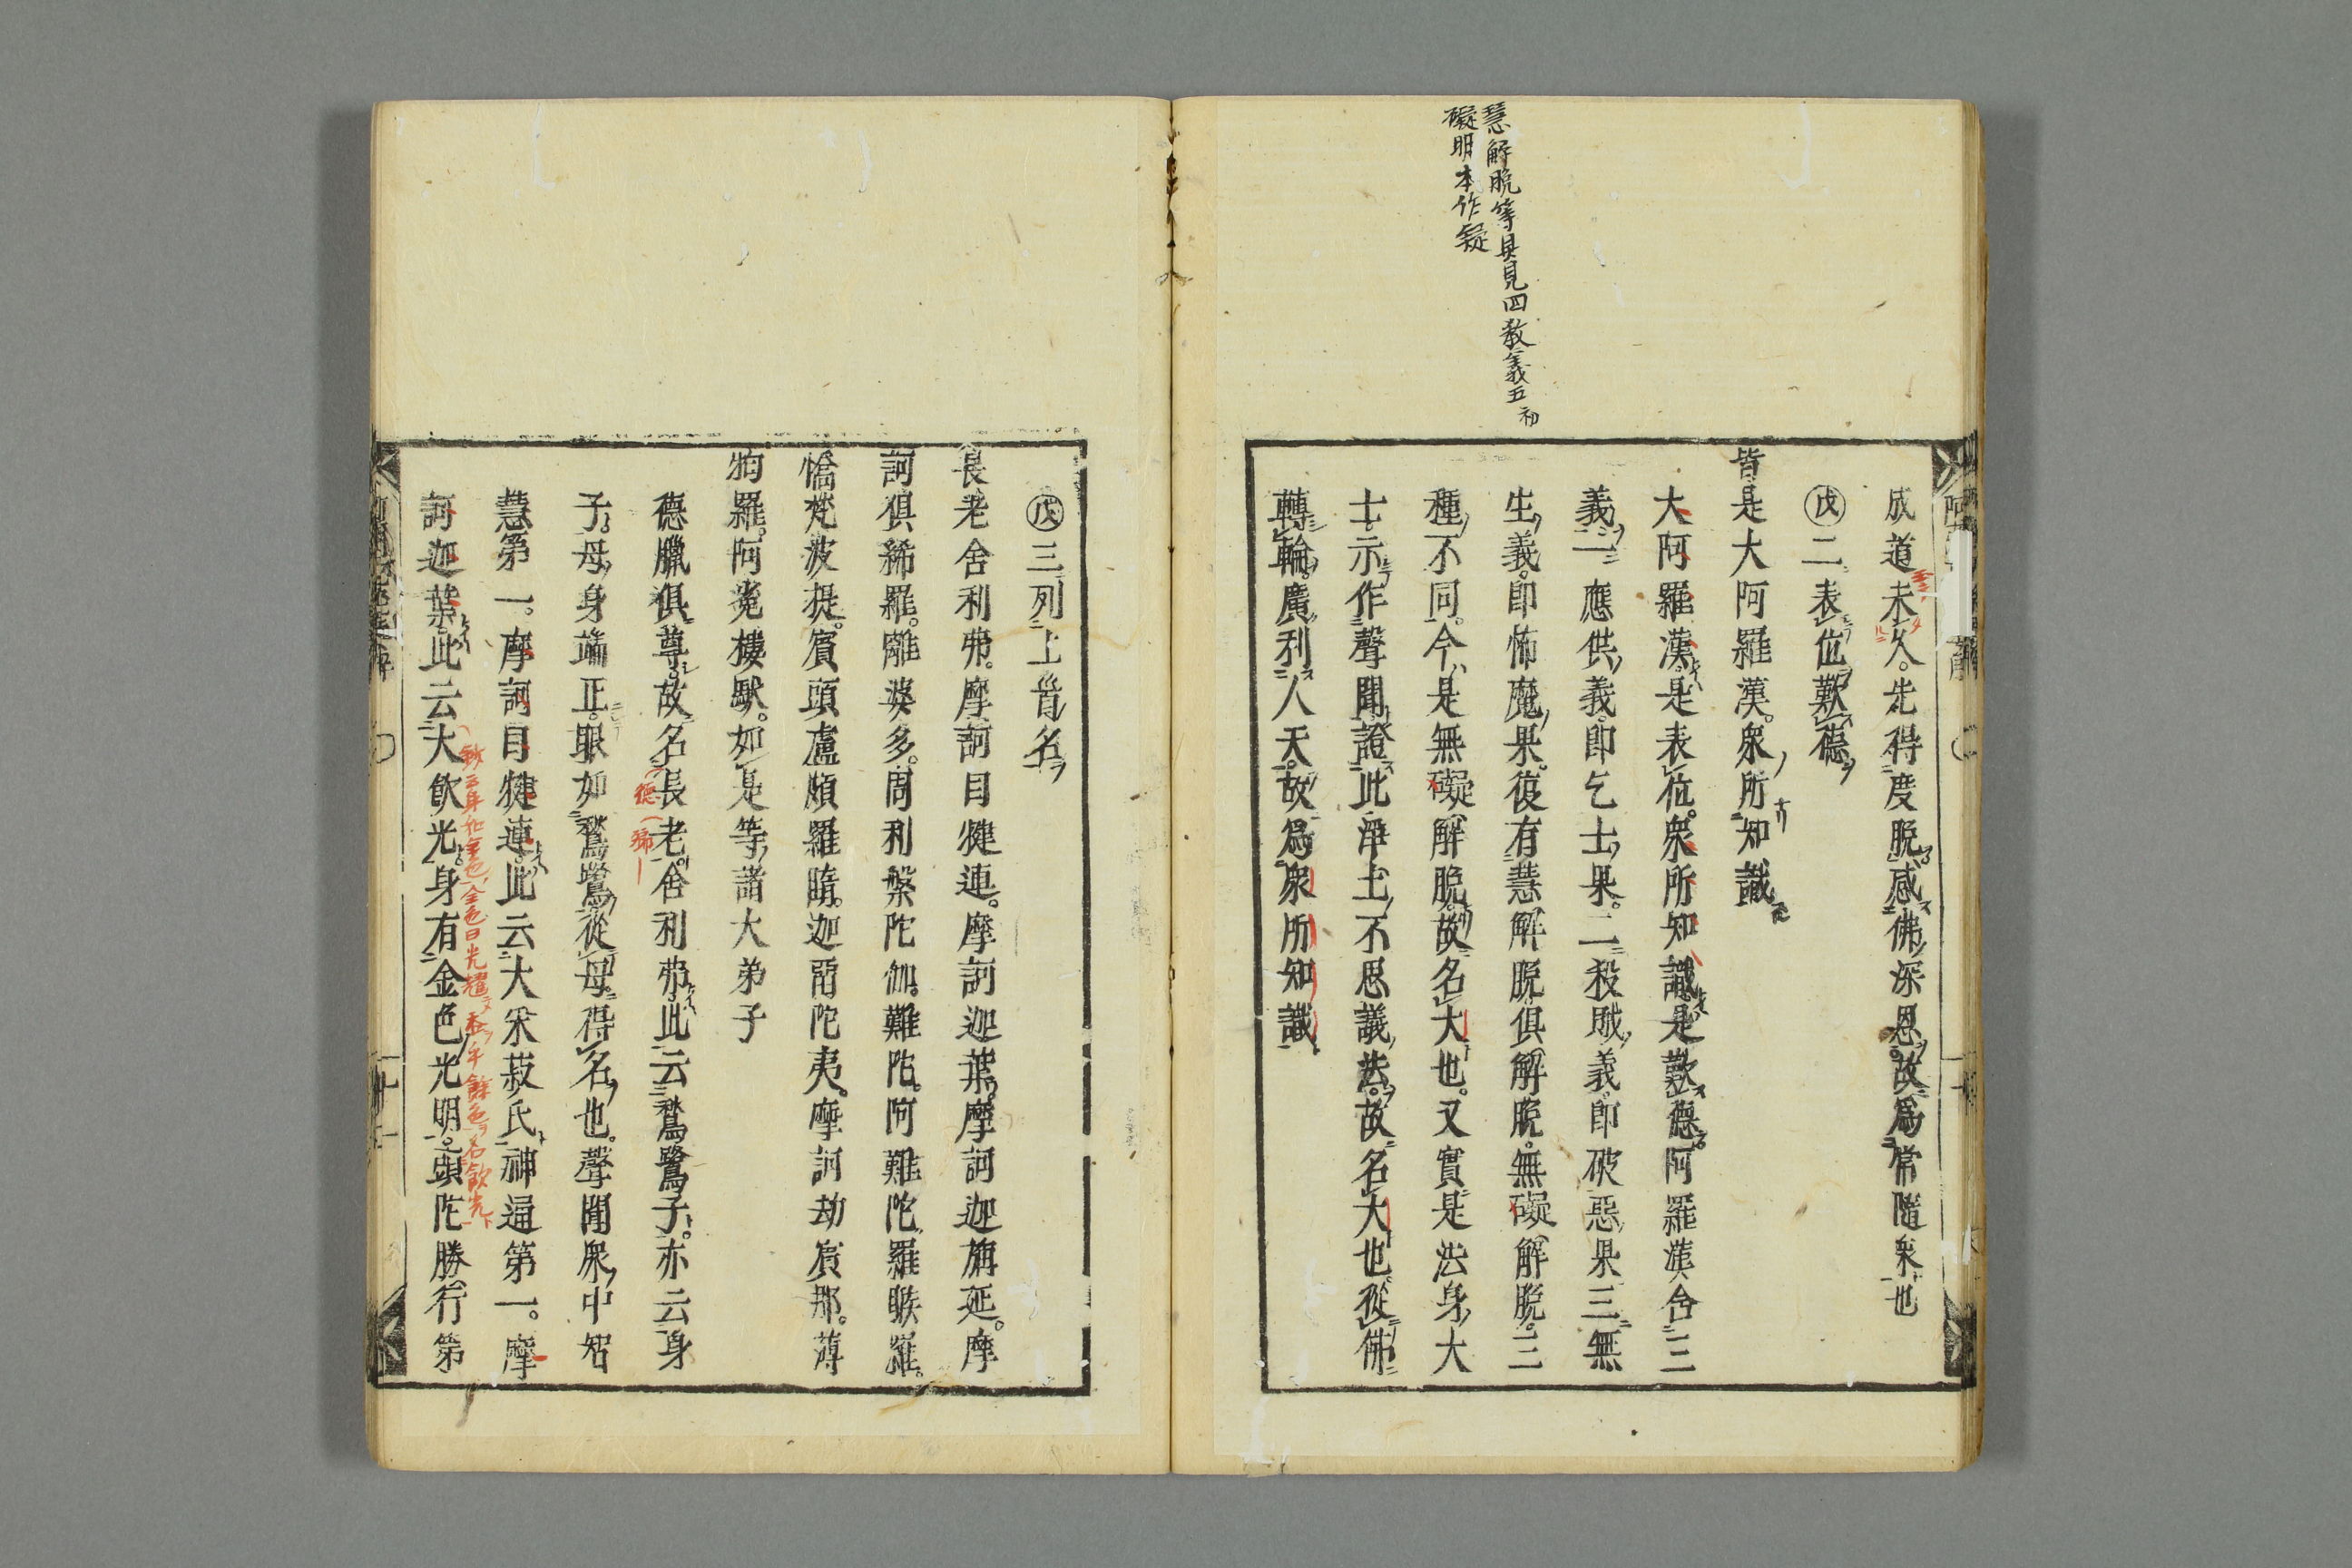 慧解脱等具見四教義五初
礙明本作疑
成道未久。先得度脱感佛深恩。故爲常隨衆也
戊二表位歎德
皆是大阿羅漢。衆所知識
大阿羅漢。是表位。衆所知識是歎德。阿羅漢含三
義一應供義。即乞士果。二殺賊義。即破惡果三無
生義。即怖魔果。復有慧解脱俱解脱。無礙解脱。三
種不同。今是無礙解脱。故名大也。又實是法身大
士。示作聲聞證此淨土不思議法。故名大也。從佛
轉輪。廣利人天。故爲衆所知識
戊三列上首名
長老舍利弗。摩訶目犍連。摩訶迦葉。摩訶迦旃延。摩
訶俱絺羅。離婆多。周利槃陀伽。難陀。阿難陀。羅睺羅。
憍梵波提。賓頭盧頗羅墮。迦留陀夷。摩訶劫賓那。薄
拘羅。阿㝹樓馱。如是等諸大弟子
德臘俱尊。故名長老。舍利弗。此云鶖鷺子。亦云身
子。母身端正。眼如鶖鷺從母得名也。聲聞衆中智
慧第一。摩訶目犍連。此云大采菽氏。神通第一。摩
訶迦葉此云大飲光。身有金色光明。頭陀勝行第